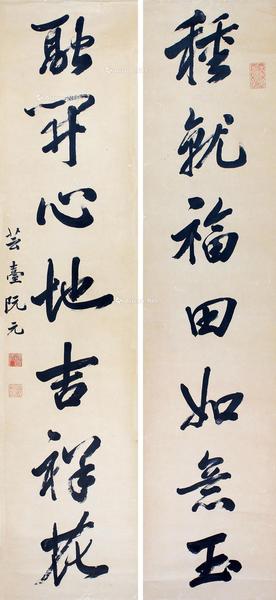 種就福田如意玉
融開心地吉祥花
芸臺阮元